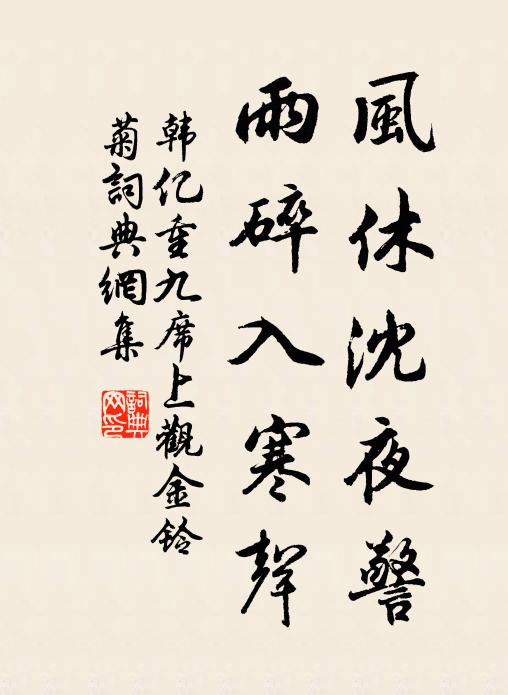 風休沈夜警
雨碎入寒聲
韩亿重九席上觀金鈴
菊詞典網集
詞典
网印